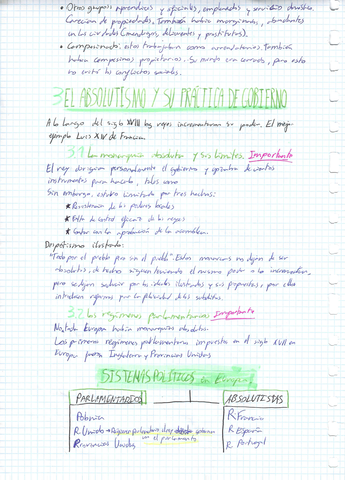 • Otros grupos: aprendices y oficiales, empleados y servicio doméstico.
Carecían de propiedades. También había marginados, abundantes
en las ciudades (mendigos, delincuentes y prostitutas).
• Campesinado: estos trabajaban como arrendatarios. También
había campesinos propietarios. Su
no evitar los conflictos sociales.
3 EL ABSOLUTISMO Y SU PRÁCTICA DE GOBIERNO
A lo largo del siglo XVIII los reyes incrementaron su poder. El mejor
ejemplo Luis XIV de Francia.
3.1 La monarquía absoluta y sus límites. Importante
El rey dirigía personalmente el gobierno y de varios
instrumentos para hacerlo, tales como
Sin embargo, estaba limitado por tres hechos:
* Persistencia de los poderes locales
* Falta de control eficaz de los reyes
* Contar con la aprobación de la
Despotismo ilustrado:
"Todo por el pueblo pero sin el pueblo". Estos monarcas no dejan de ser
absolutos, de hecho siguen teniendo el mismo poder o lo incrementan,
pero se dejan seducir por las ideas ilustradas y sus propuestas, por ello
introducen reformas por la felicidad de los súbditos.
3.2 Los regímenes parlamentarios Importante
No toda Europa había monarquías absolutas.
Los primeros regímenes parlamentarios impuestos en el siglo XVII en
Europa fueron Inglaterra y Provincias Unidas
SISTEMAS POLÍTICOS en Europa
PARLAMENTARIOS ABSOLUTISTAS
Polonia R Francia
R Unido → R España
Provincias Unidas con el parlamento R Portugal